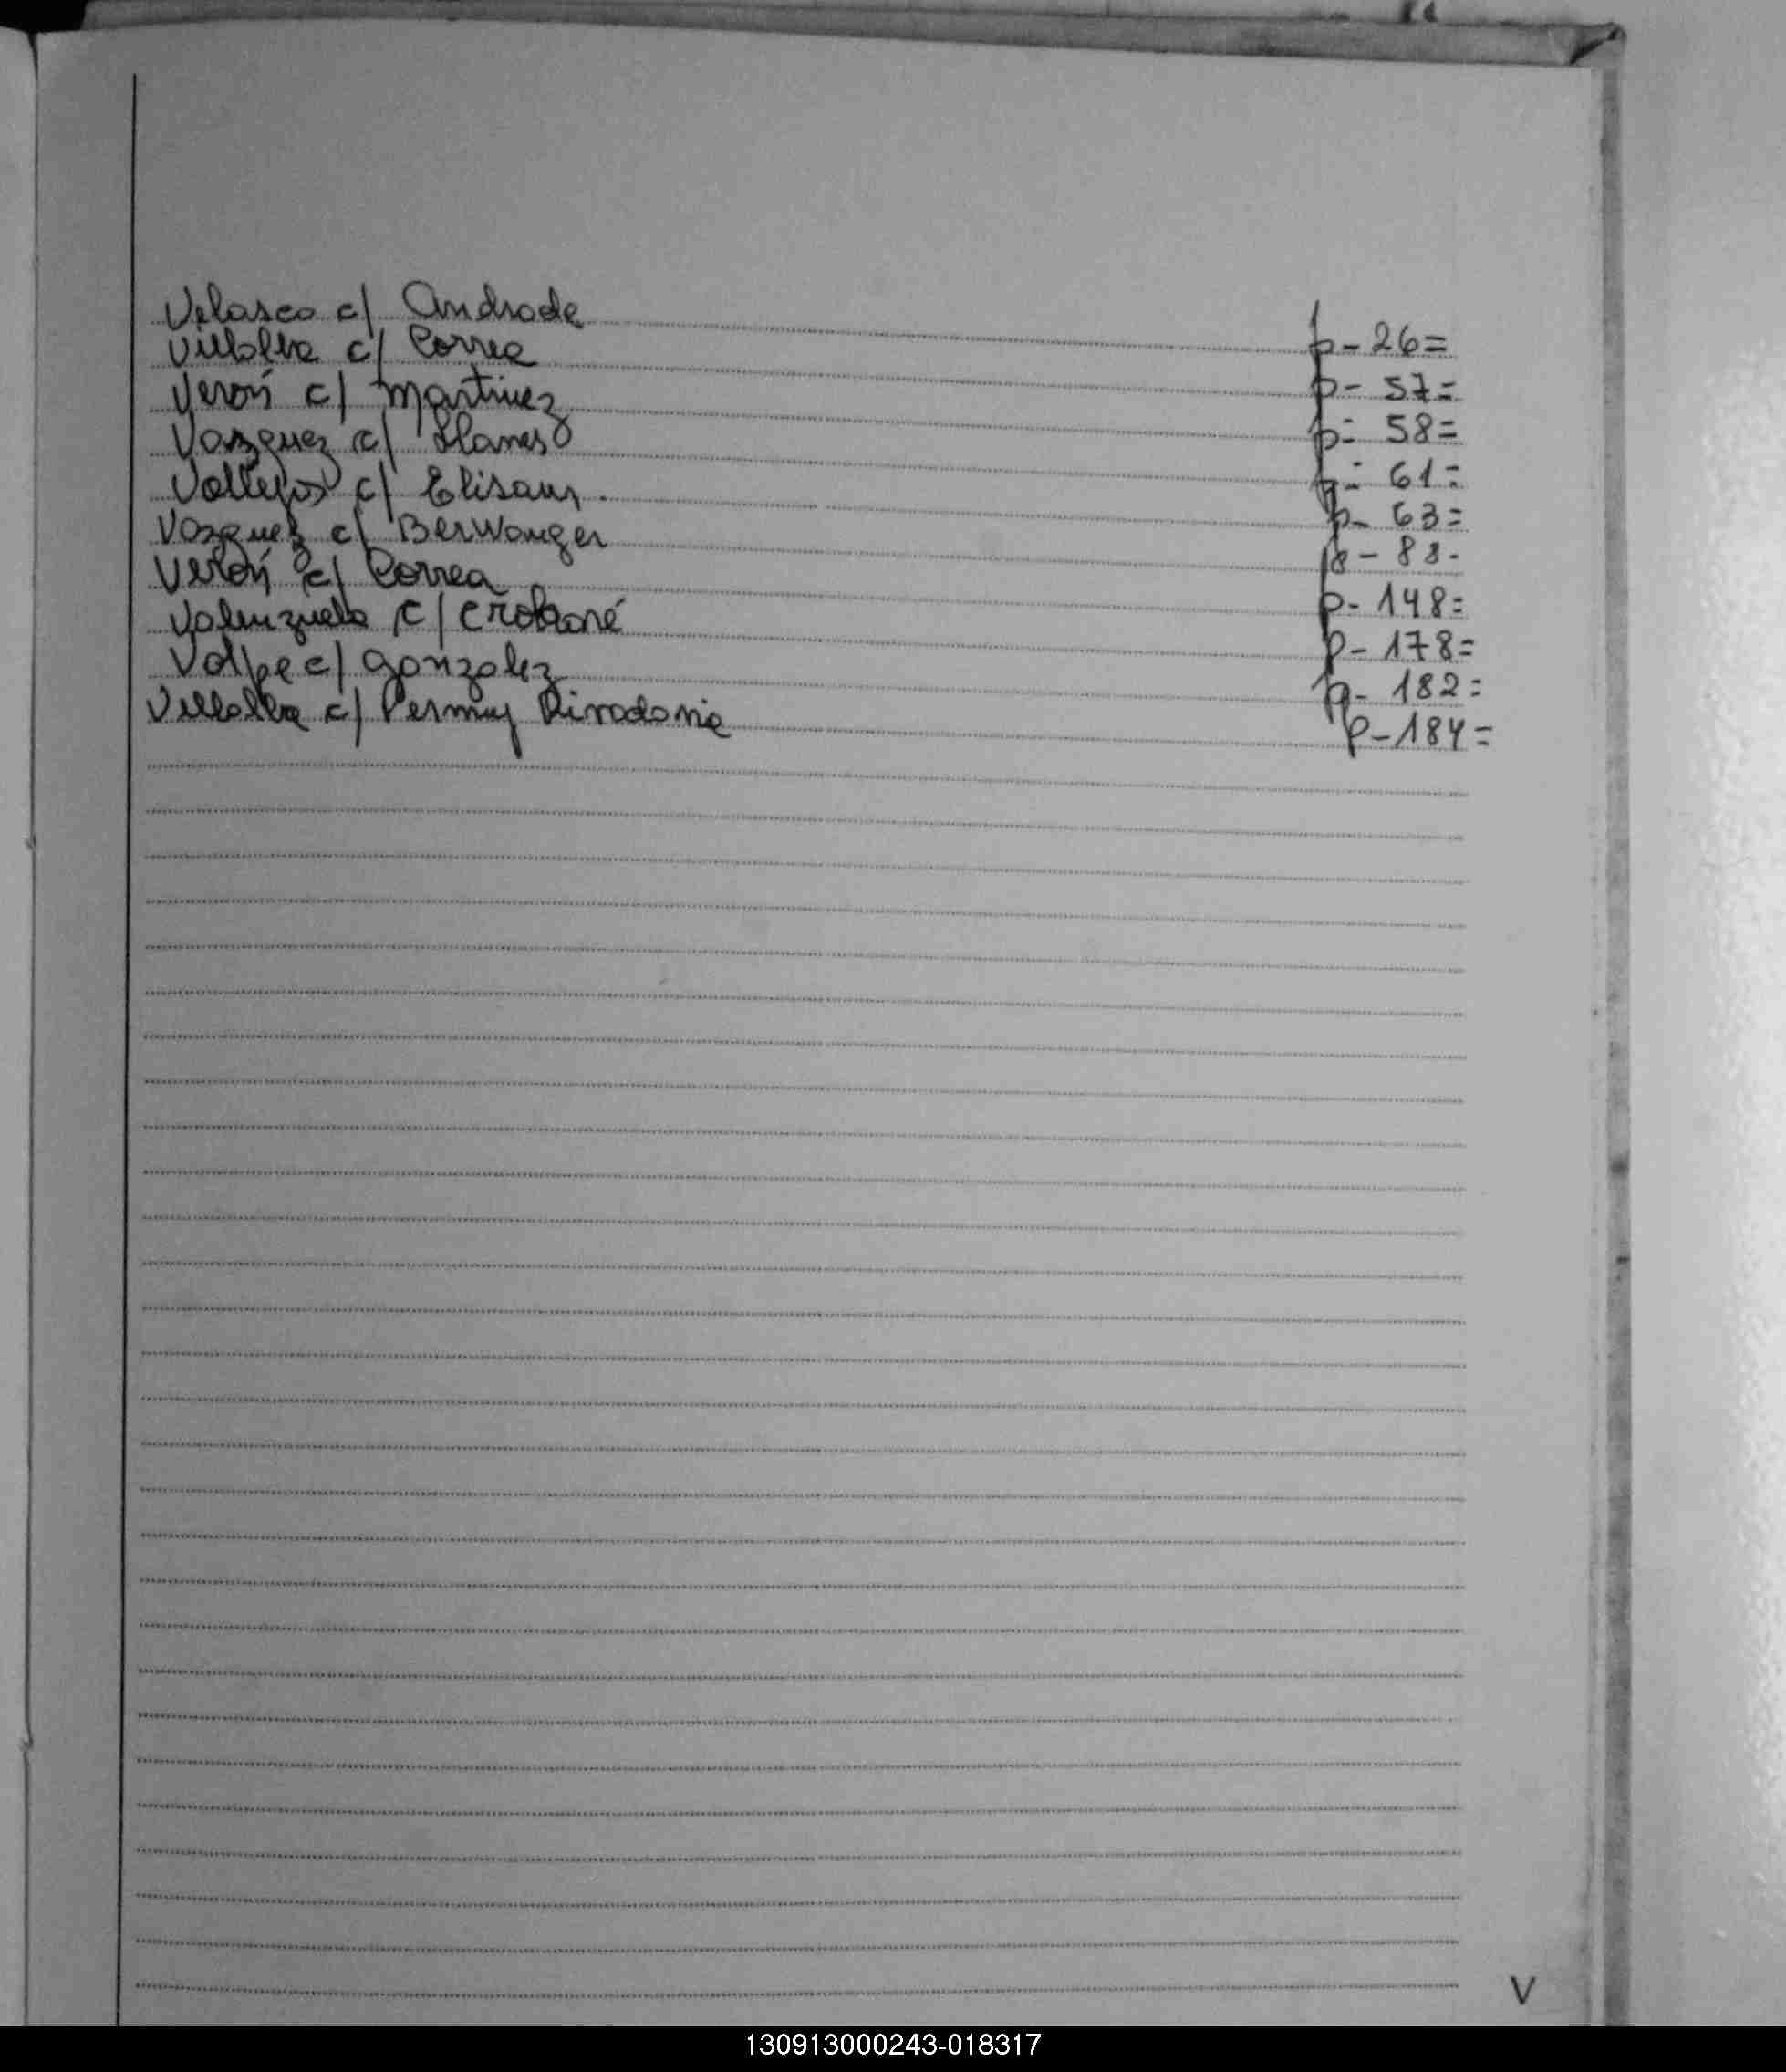 Velasco c/ Andrade p- 26=
Villalba c/ Correa p- 57=
Verón c/ Martinez p= 58=
Vazquez c/ Llanes p= 61=
Vallejos c/ p- 63=
Vazquez c/ Berwanger p- 88-
Verón c/ Correa p- 148=
Valenzuela c/ p- 178=
Volpe c/ Gonzalez p- 182=
Villalba c/ Permuy Rivadavia p- 184=
V
130913000243-018317